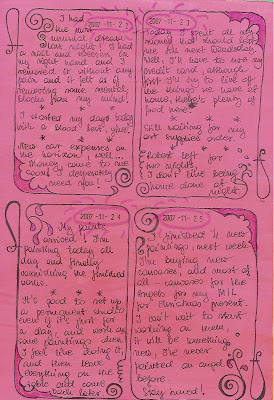 2007-11-22
I had
the most
unusual dream
last night. I had
a nail and beeswax in
my right hand and I
removed it without any
pain and it felt as if
removing some mental
blocks from my mind!
I started my day today
with a blast: yes!
New car expenses on
the horizon, well...
Money, come to me
soon! I desperately
need you!
2007-11-23
Today I spent all my
money that should last
me till next Wednesday.
Well, I'll have to use my
credit card, although
first I'll try to live off
the things we have at
home; there's plenty of
food here!
Still waiting for my
art supplies order.
Robert left for
two nights.
I don't like being
home alone at
night.
2007-11-24
My paints
arrived! I'm
painting today all
day and finally
varnishing the finished
works.
It's good to set up
a permanent studio
even if it's just for
a day, and work on
some paintings when
I feel like doing it,
and then leave
everything on the
table and come
back later.
2007-11-25
I finished 4 new
paintings; next week
I'm buying new
canvases, and most of
all - canvases for the
Angels for my MIL
Christmas present.
I can't wait to start
working on them.
It will be something
new, I've never
painted an angel
before.
Stay tuned!